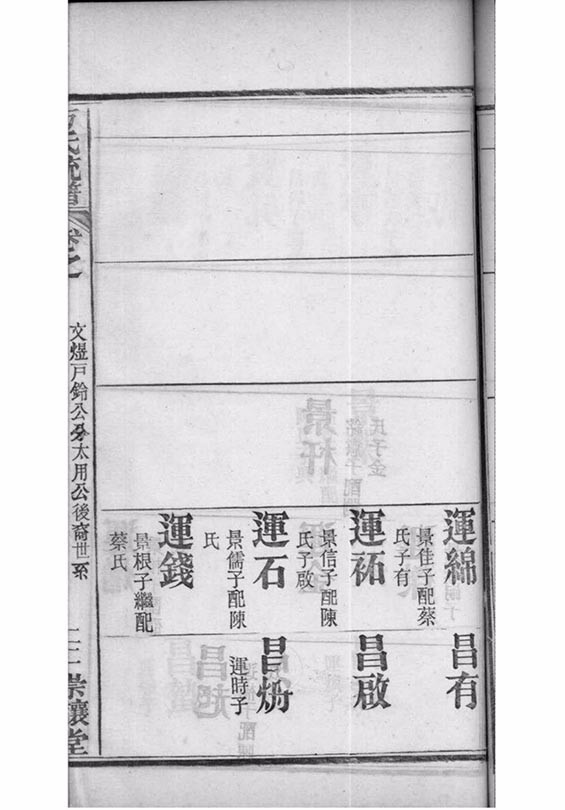 運綿
景佳子配蔡
氏子有
昌有
運祏
景信子配陳
氏子啟
昌啟
運石
景儒子配陳
氏
昌炳
運時子
運錢
景根子繼配
蔡氏
氏統譜
卷之
文煜戶鈴公分太用公後裔世系
崇讓堂